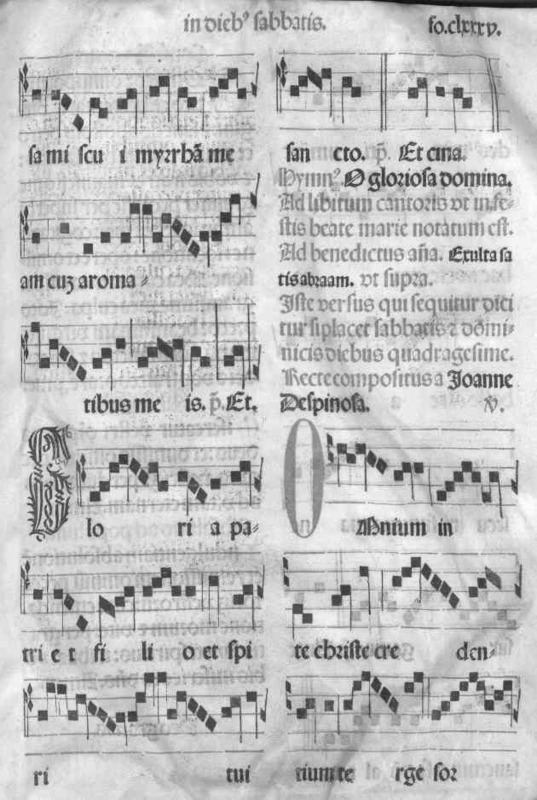 in dieb⁹ sabbatis. fo.clxxxv.
sa mi scu i myrrhā me
am cuȝ aroma
tibus me is. p̄. Et.
Glo ri a pa-
tri e t fi li o et spi
ri tui
san cto. p̄. Et cina.
Hymn⁹. O gloriosa domina.
Ad libitum cantoris vt in fe-
stis beate marie notatum est.
Ad benedictus aña. Exulta sa
tis abraam. vt supra.
Iste versus qui sequitur dici
tur si placet sabbatis ⁊ domi-
nicis diebus quadragesime.
Recte compositus a Joanne
Despinosa. ℣.
Omnium in
te christe cre den-
tium te rge sor